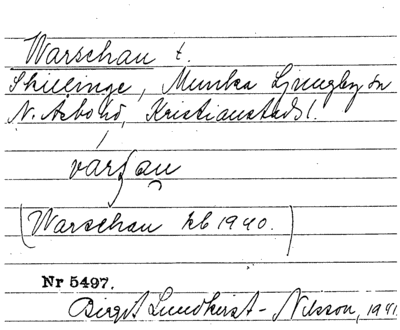 Warschau t.
Skillinge, Munka Ljungby sn
N. Åsbo hd, Kristianstads l.
varʃau
(Warschau kb 1940.)
Nr 5497.
Birgit Lundkvist-Nilsson, 1941